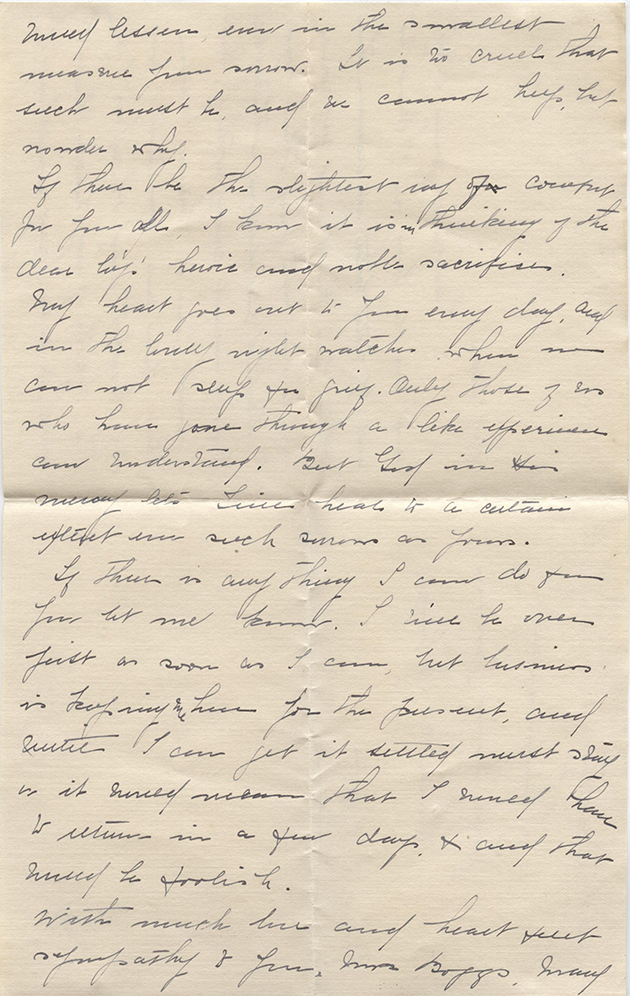 would lessen, even in the smallest
measure your sorrow. It is so cruel that
such must be, and we cannot help, but
wonder why.
If there be the slightest ray of comfort
for you all, I know it is in thinking of the
dear boy's heroic and noble sacrifice.
My heart goes out to you every day, and
in the lonely night watches when we
can not sleep for grief. Only those of us
who have gone through a like experience
can understand. But God in His
mercy lets time heal to a certain
extent even such sorrows as yours.
If there is anything I can do for
you let me know. I will be over
just as soon as I can, but business
is keeping me here for the present, and
until I can get it settled must stay
or it would mean that I would have
to return in a few days, & and that
would be foolish.
With much love and heart felt
sympathy to you, Mrs Boggs, Mary